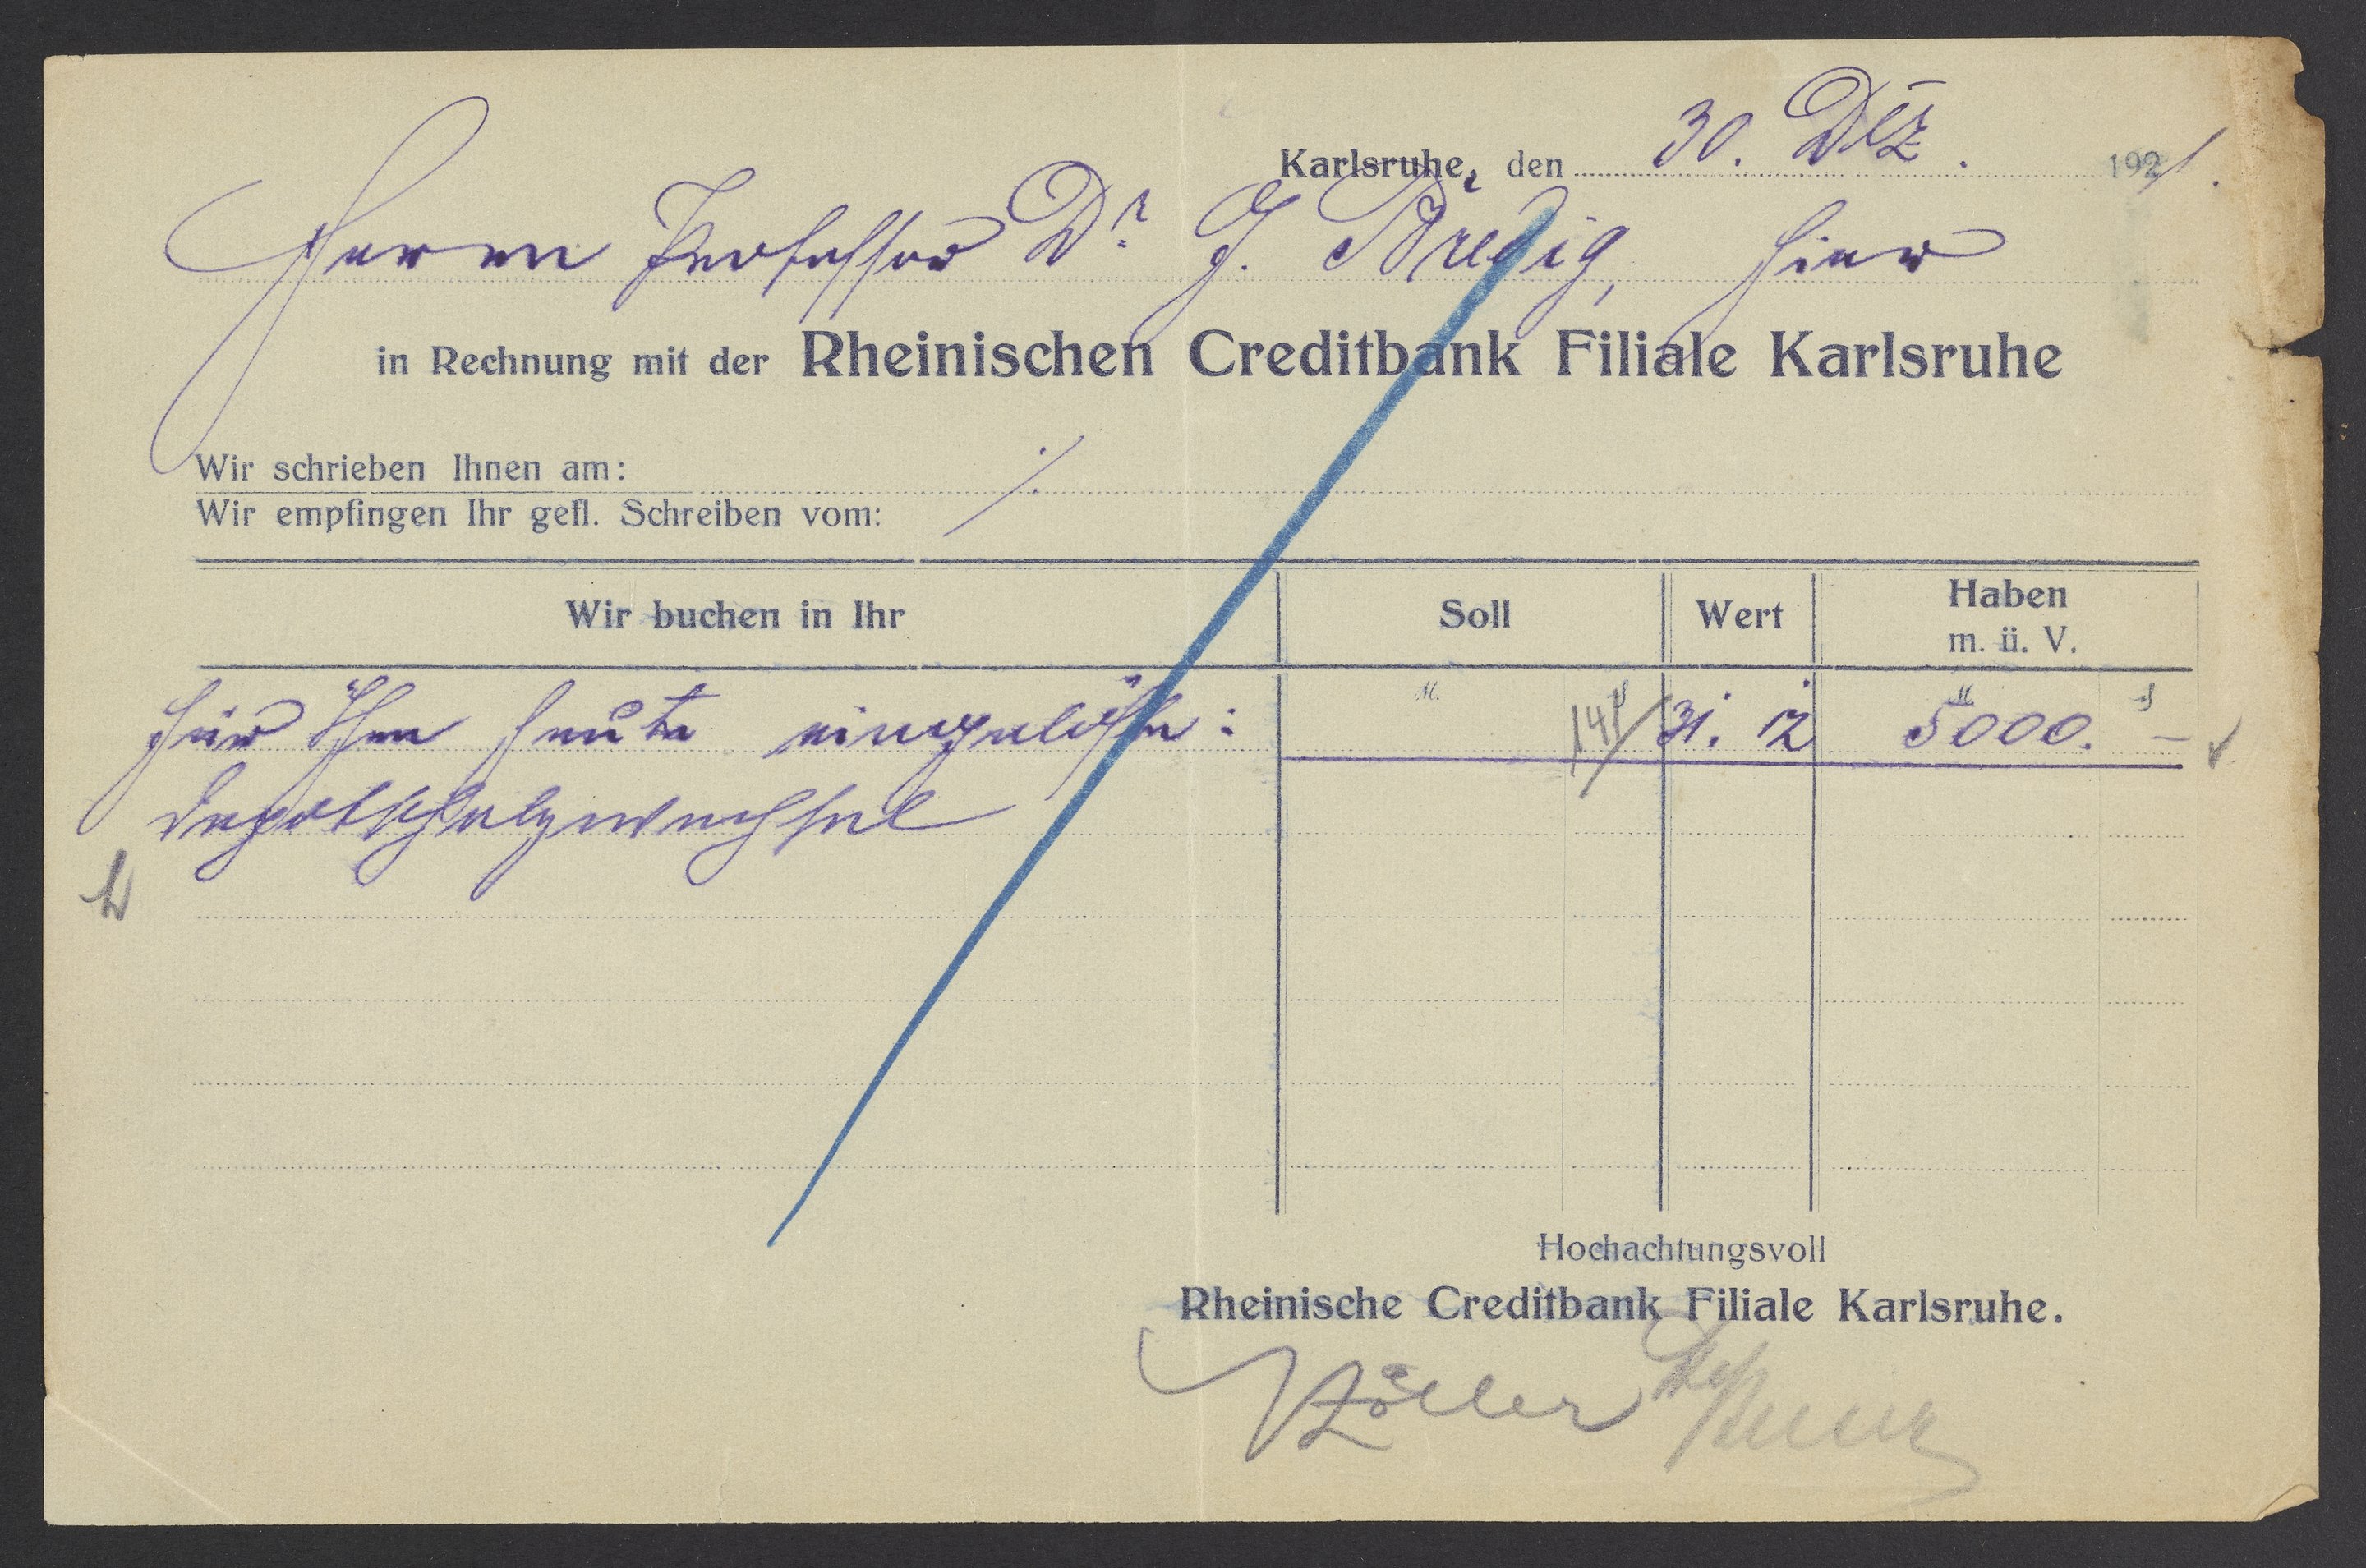 Karlsruhe, den 30. Dez. 1921.
Herrn Professor Dr. G. Bredig, hier
in Rechnung mit der Rheinischen Creditbank Filiale Karlsruhe
Wir schrieben Ihnen am:
Wir empfingen Ihr gefl. Schreiben vom: ./.
Wir buchen in Ihr Soll Wert Haben
m. ü. V.
M. ₰ M ₰
für Ihnen heute eingelöste: 31. 12 5000. —
Hochachtungsvoll
Rheinische Creditbank Filiale Karlsruhe.